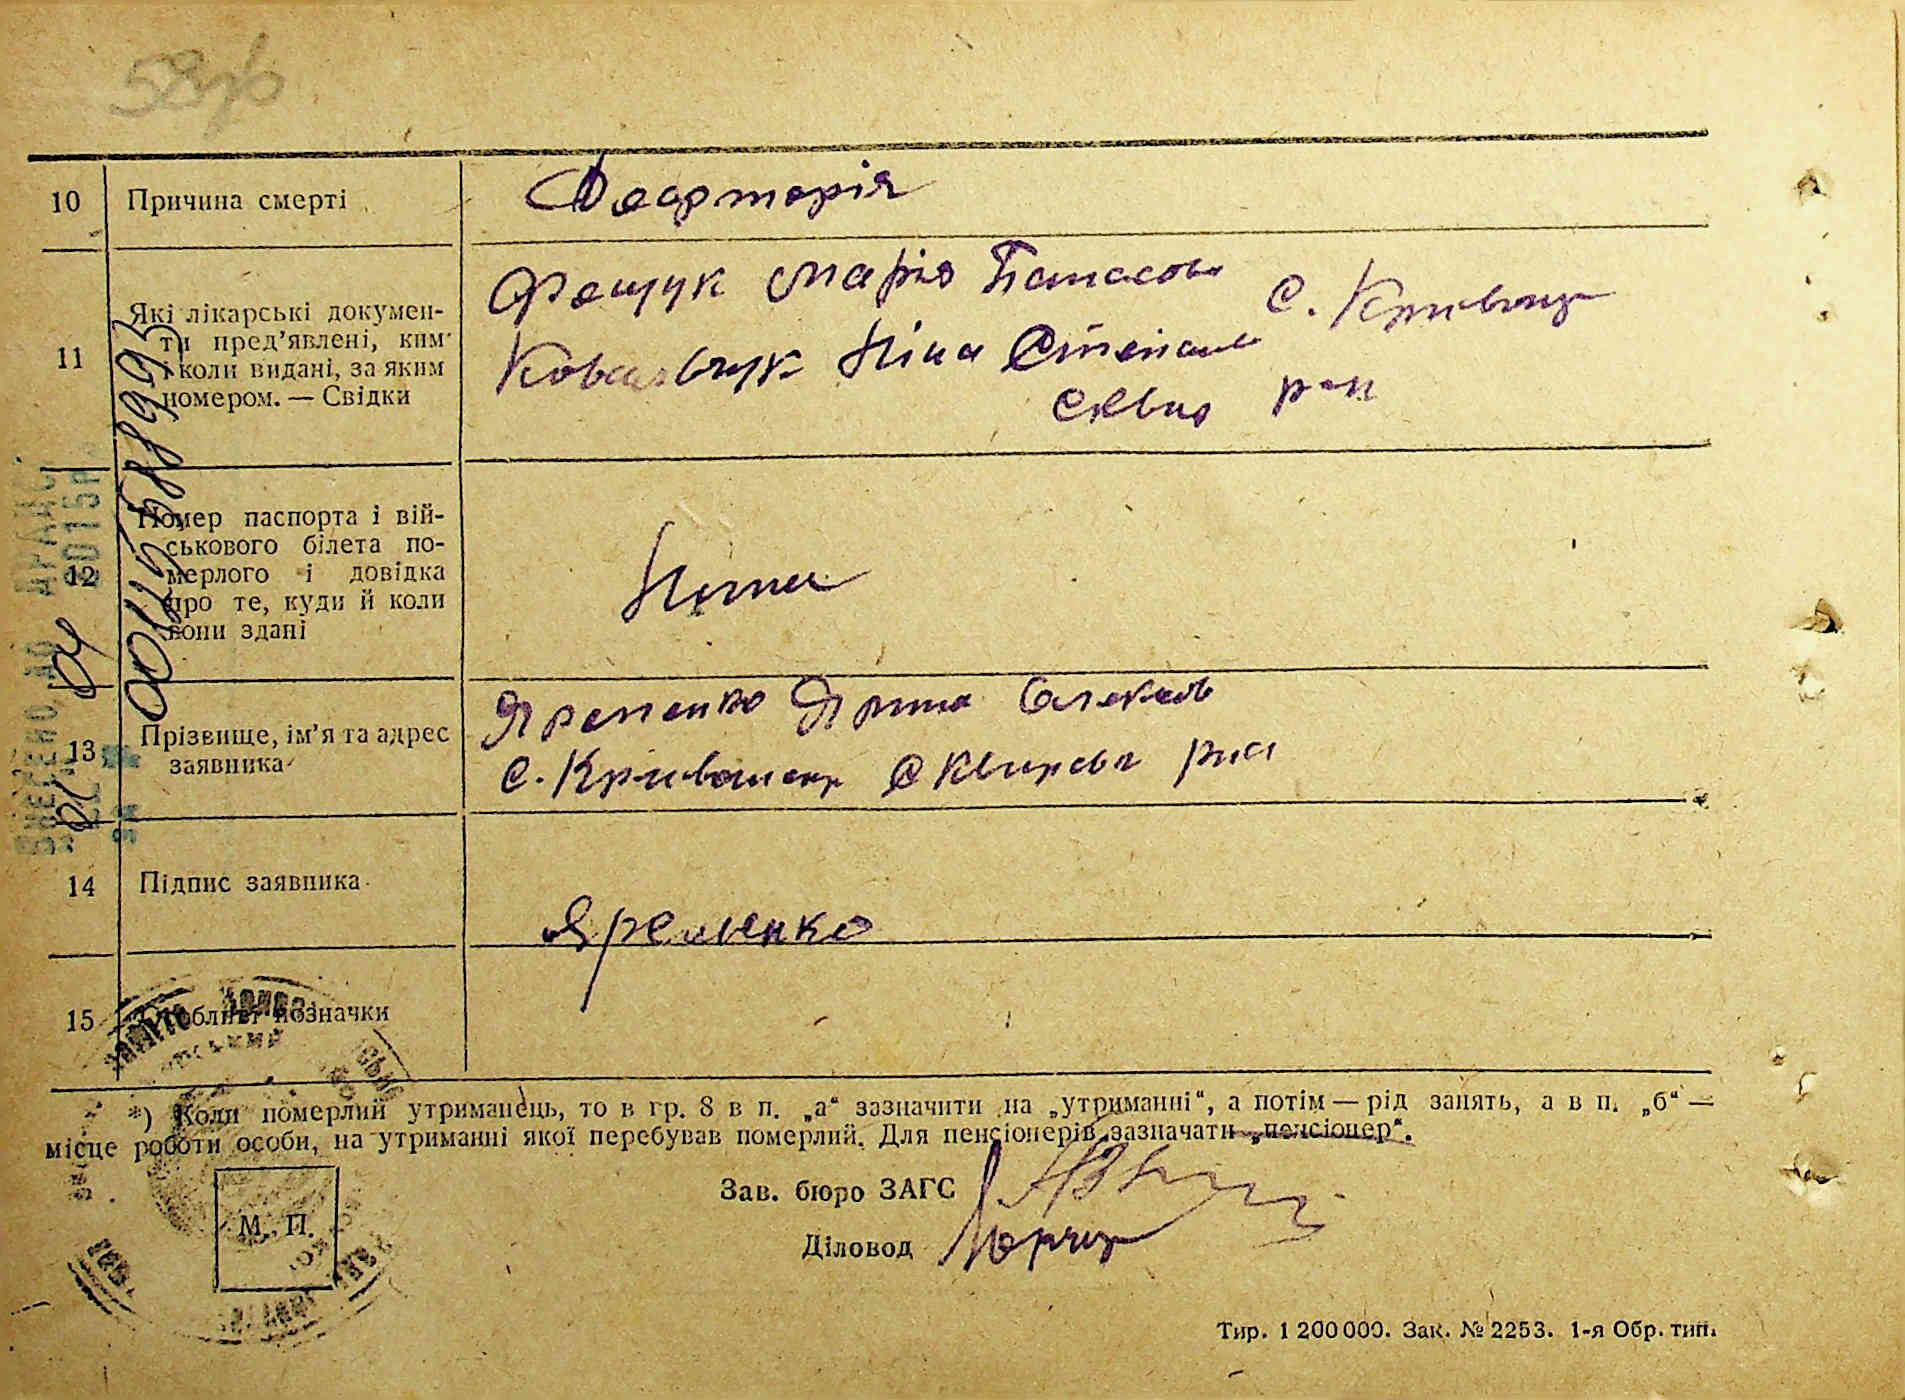 10 Причина смерті Деарторія
11 Які лікарські докумен-
ти пред’явлені, ким
і коли видані, за яким
номером. — Свідки
Фещук Марія Панасов
с. Кривош
Ковальчук Ніна Степанів
Сквир р-н
12 Номер паспорта і вій-
ськового білета по-
мерлого і довідка
про те, куди й коли
вони здані
Нема
00115588993
13 Прізвище, ім’я та адрес
заявника
Яременко Ярина Олексів
с. Кривошеїн Сквирськ рай
14 Підпис заявника
Яременко
15 Особливі позначки
*) Коли померлий утриманець, то в гр. 8 в п. „а“ зазначити на „утриманні“, а потім — рід занять, а в п. „б“ —
місце роботи особи, на утриманні якої перебував померлий. Для пенсіонерів зазначати „пенсіонер“.
Зав. бюро ЗАГС
Діловод
М. П.
Тир. 1 200 000. Зак. № 2253. 1-я Обр. тип.